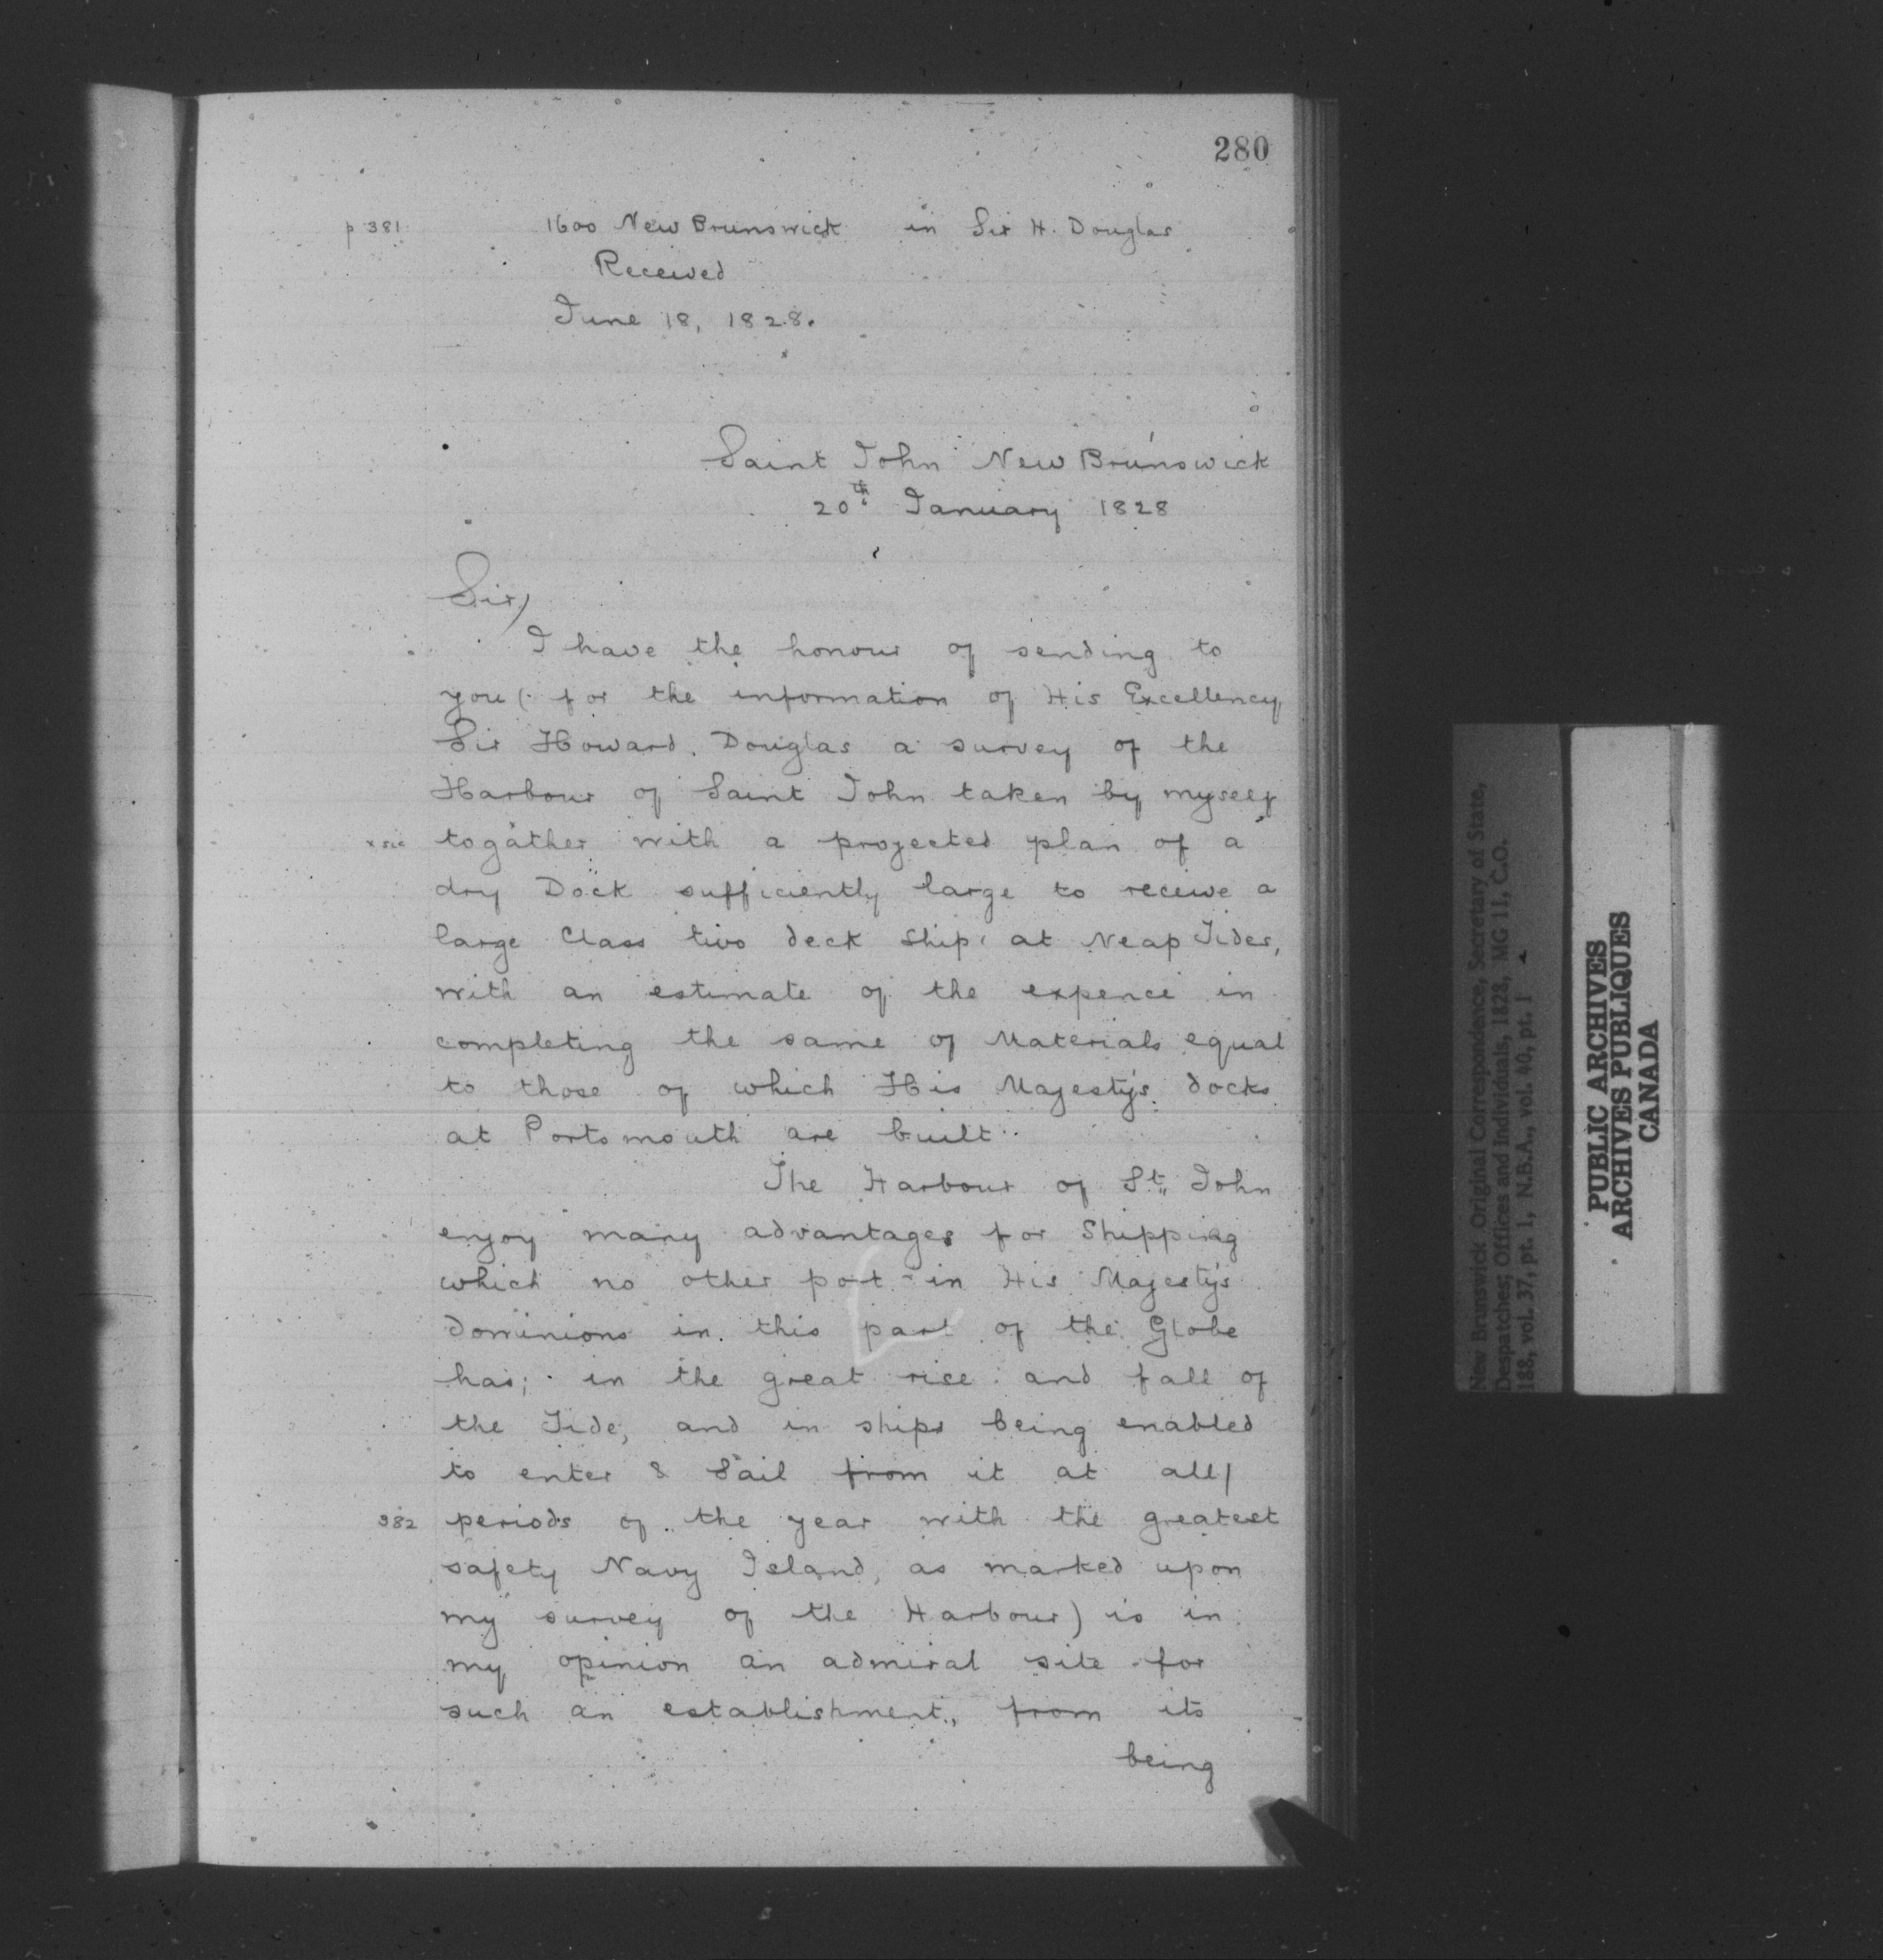 280
p 381 1600 New Brunswick in Sir H. Douglas
Received
June 18, 1828.
Saint John New Brunswick
20th January 1828
Sir,
I have the honour of sending to
you (for the information of His Excellency
Sir Howard Douglas a survey of the
Harbour of Saint John taken by myself
x sic togather with a projected plan of a
dry Dock sufficiently large to receive a
large Class two deck Ship, at Neap Tides,
with an estimate of the expence in
completing the same of Materials equal
to those of which His Majesty's docks
at Portsmouth are built.
The Harbour of St. John
enjoy many advantages for Shipping
which no other port in His Majesty's
Dominions in this part of the Globe
has; in the great rise and fall of
the Tide, and in ships being enabled
to enter & Sail from it at all/
382 periods of the year with the greatest
safety Navy Island, as marked upon
my survey of the Harbour) is in
my opinion an admiral site for
such an establishment, from its
being
New Brunswick Original Correspondence, Secretary of State,
Despatches; Offices and Individuals, 1828, MG 11, C.O.
188, vol. 37, pt. 1, N.B.A., vol. 40, pt. 1
PUBLIC ARCHIVES
ARCHIVES PUBLIQUES
CANADA